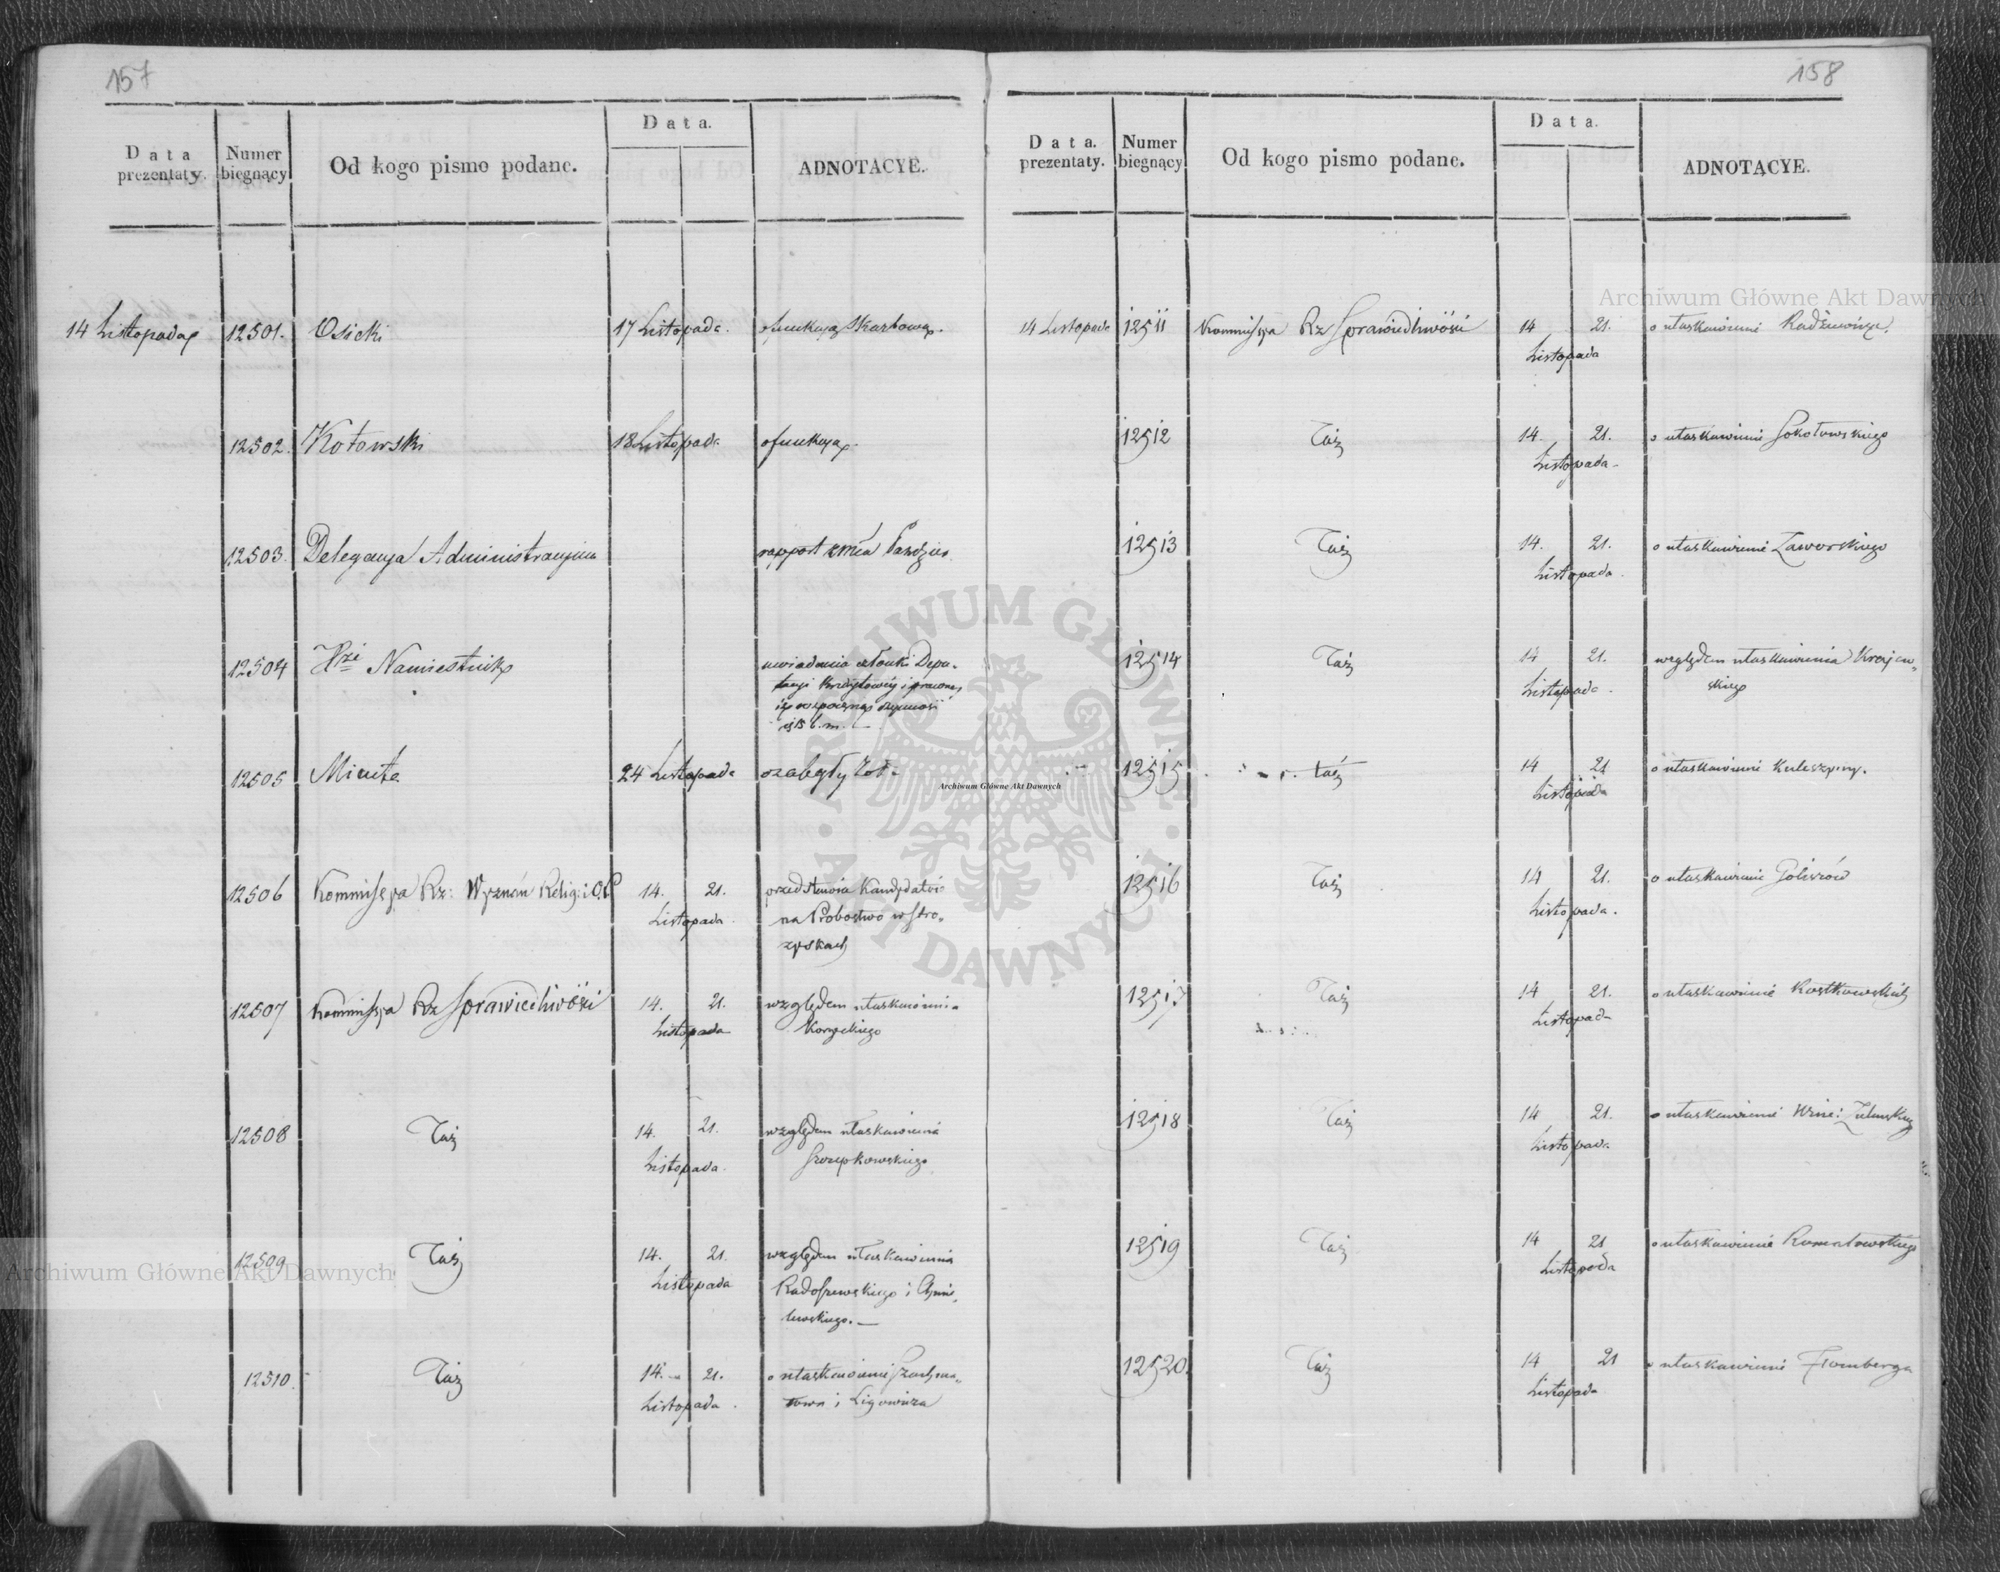 157
Data prezentaty.
Numer biegnący
Od kogo pismo podane.
Data.
ADNOTACYE.
14 Listopada 12501. Osicki 17 Listopada. o funkcyą Skarbową.
12502. Kotowski 18 Listopada o funkcyą.
12503. Delegacya Administracyina rapport zmca Paździer.
12504 Namiestnik uwiadamia członki Depu-
tacyi
b. m.
12505 Miuta 24 Listopada o zaległy
12506 Kommissya Rz: Wyznań Relig: i O.P 14. 21. przedstawia Kandydatów
Listopada na Probostwo w Stro-
zyskach
12507 Kommissya Rz Sprawiedliwości 14. 21. względem ułaskawienia
Listopada Korzyckiego
12508 Taż 14. 21. względem ułaskawienia
Listopada Szczepkowskiego
12509 Taż 14. 21. względem ułaskawienia
Listopada Radoszewskiego i Chmie-
lewskiego.
12510. Taż 14. 21. o ułaskawienie
Listopada i Ligowicza
158
Data. prezentaty.
Numer biegnący
Od kogo pismo podane.
Data.
ADNOTACYE.
14 Listopada 12511 Kommissya Rz Sprawiedliwości 14 21. o ułaskawienie
Listopada
12512 Taż 14. 21. o ułaskawienie Sokołowskiego
Listopada
12513 Taż 14. 21. o ułaskawienie Zaworskiego
Listopada
12514 Taż 14 21. względem ułaskawienia Krajew-
Listopada skiego
12515 Taż 14 21 o ułaskawienie Kuleszyny.
Listopada
12516 Taż 14 21. o ułaskawienie Goliszów
Listopada.
12517 Taż 14 21. o ułaskawienie Rostkowskich
Listopada
12518 Taż 14 21. o ułaskawienie
Listopada
12519 Taż 14 21 o ułaskawienie Romatowskiego
Listopada
12520. Taż 14 21 o ułaskawienie Fromberga
Listopada
Archiwum Główne Akt Dawnych
Archiwum Główne Akt Dawnych
ARCHIWUM GŁÓWNE AKT DAWNYCH
Archiwum Główne Akt Dawnych